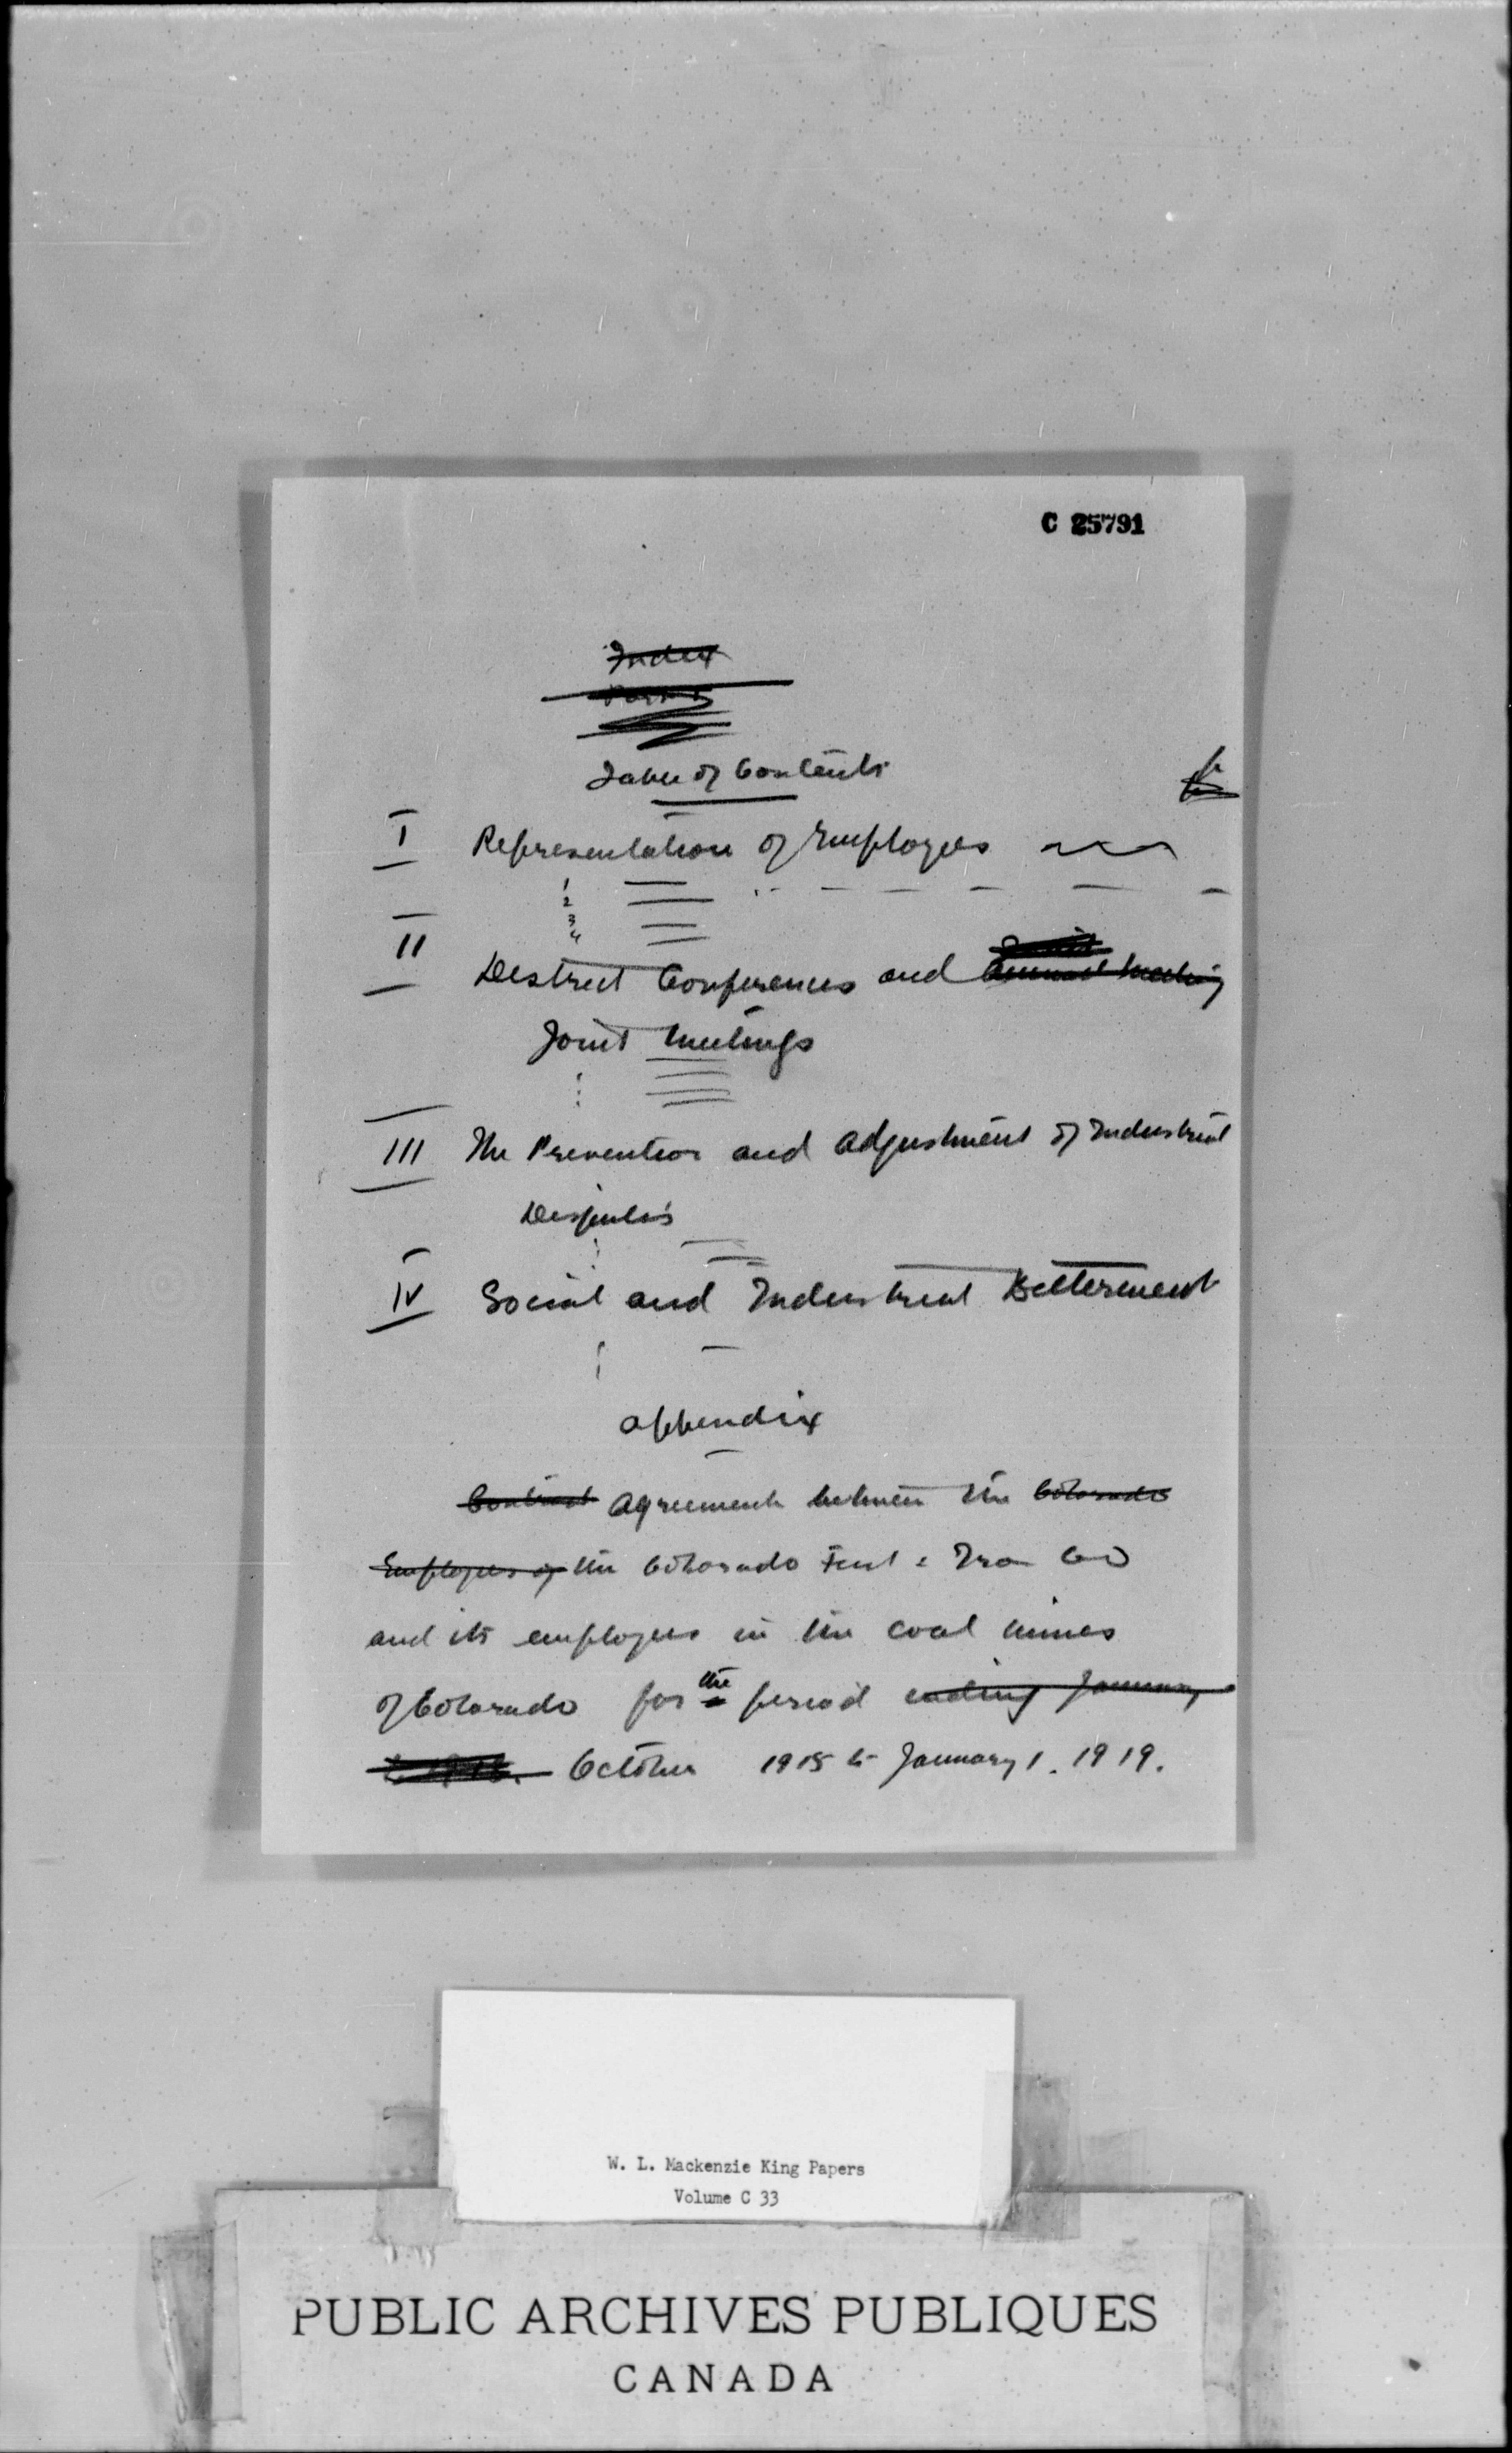 C 25791
Index
Table of Contents
p
I Representation of Employees
1
2
3
4
II District Conferences and Annual Meeting
Joint Meetings
III The Prevention and Adjustment of Industrial
Disputes
IV Social and Industrial Betterment
Appendix
Contract Agreement between the Colorado
Employees of the Colorado Fuel & Iron Co
and its employees in the coal mines
of Colorado for the period ending January
October 1915 to January 1. 1919.
W. L. Mackenzie King Papers
Volume C 33
PUBLIC ARCHIVES PUBLIQUES
CANADA